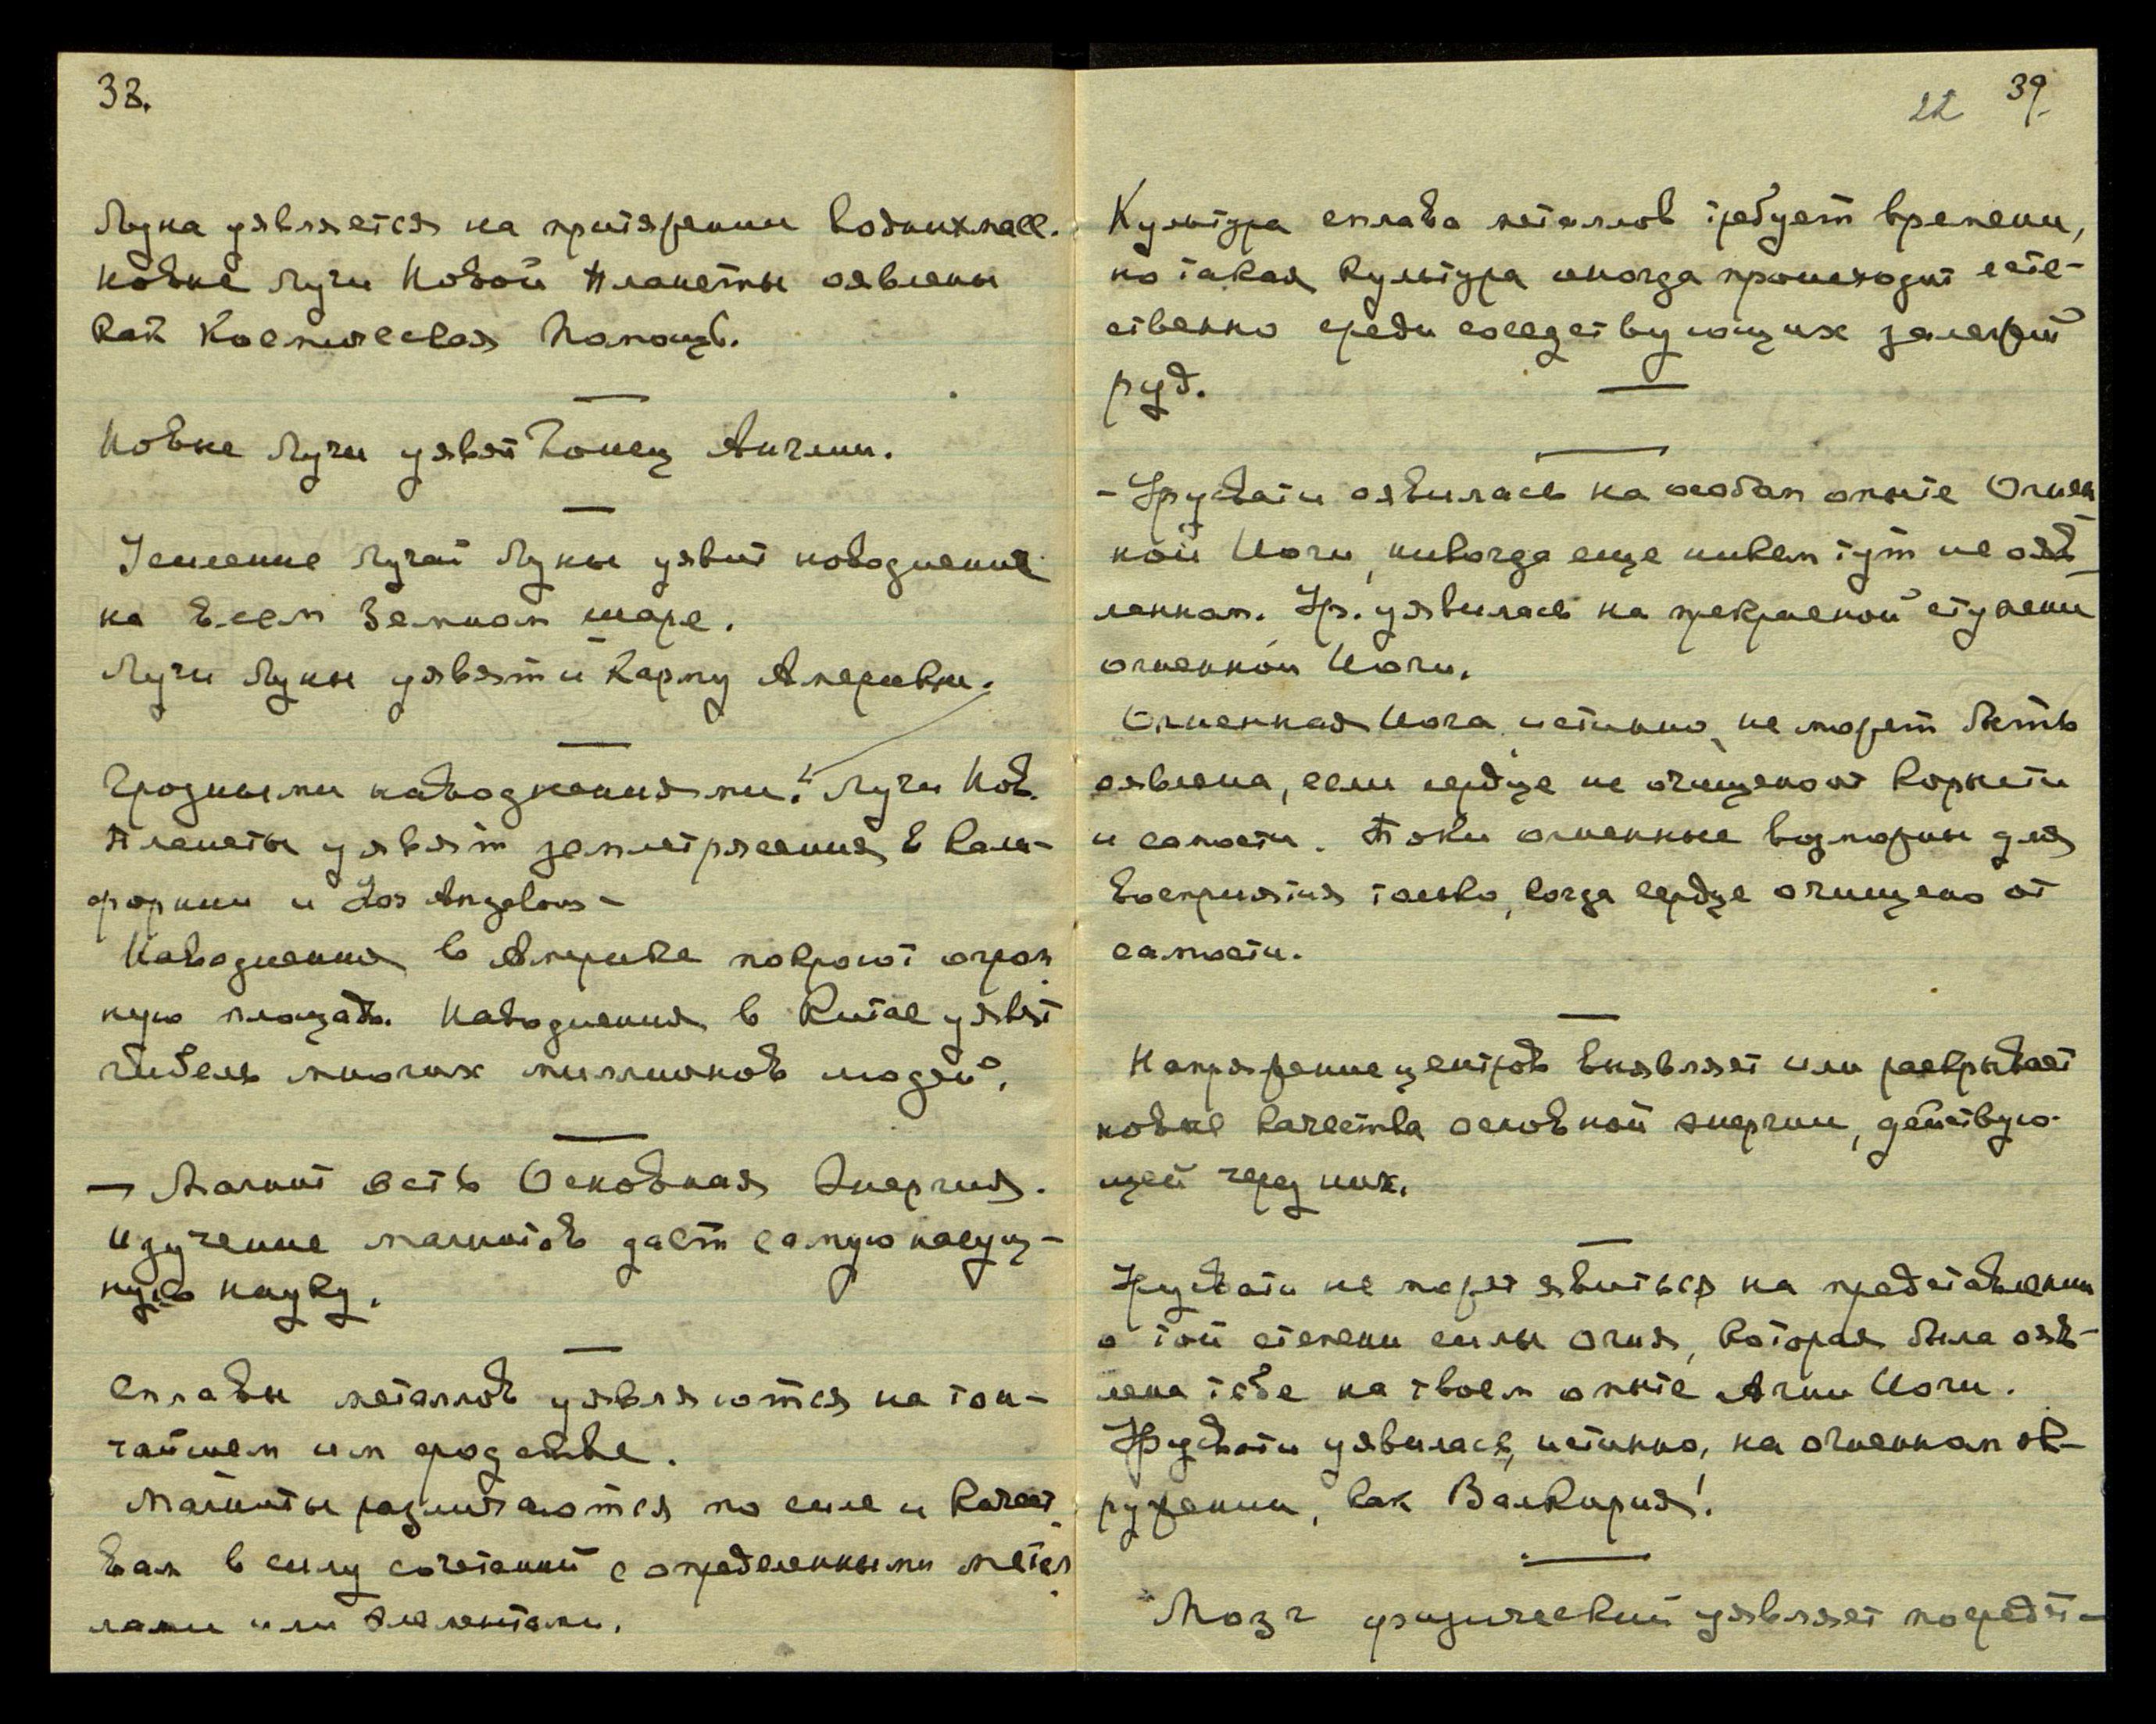 38.
Луна уявляется на притяжении водных масс.
Новые Лучи Новой Планеты оявлены
как Космическая Помощь.
Новые Лучи уявят конец Англии.
Усиление Лучей Луны уявит наводнения
на всем Земном шаре.
Лучи Луны уявят и Карму Америки.
Грозными наводнениями! Лучи Нов.
Планеты уявят землетрясения в Кали-
форнии и Los Angelos -
Наводнения в Америке покроют огром
ную площадь. Наводнения в Китае уявят
гибель многих миллионов людей.
— Магнит есть Основная Энергия.
Изучение магнитов даст самую насущ-
ную науку.
Сплавы металлов уявляются на тон-
чайшем им сродстве.
Магниты различаются по силе и качест
вам в силу сочетаний с определенными метал
лами или элементами.
22 39.
Культура сплава металлов требует времени,
но такая культура иногда происходит есте-
ственно среди соседствующих залежей
руд.
- Урусвати оявилась на особом опыте Огнен
ной Йоги, никогда еще никем тут неояв-
ленном. Ур. уявилась на прекрасной ступени
огненной Йоги.
Огненная Йога, истинно, не может быть
оявлена, если сердце не очищено от корысти
и самости. Токи огненные возможны для
восприятия только, когда сердце очищено от
самости.
Напряжение центров выявляет или раскрывает
новые качества основной энергии, действую-
щей через них.
Урусвати не может явиться на представлении
о той степени силы огня, которая была ояв-
лена тебе на твоем опыте Агни Йоги.
Урусвати уявилась, истинно, на огненном ок-
ружении, как Валкирия!
Мозг физический уявляет посредст-